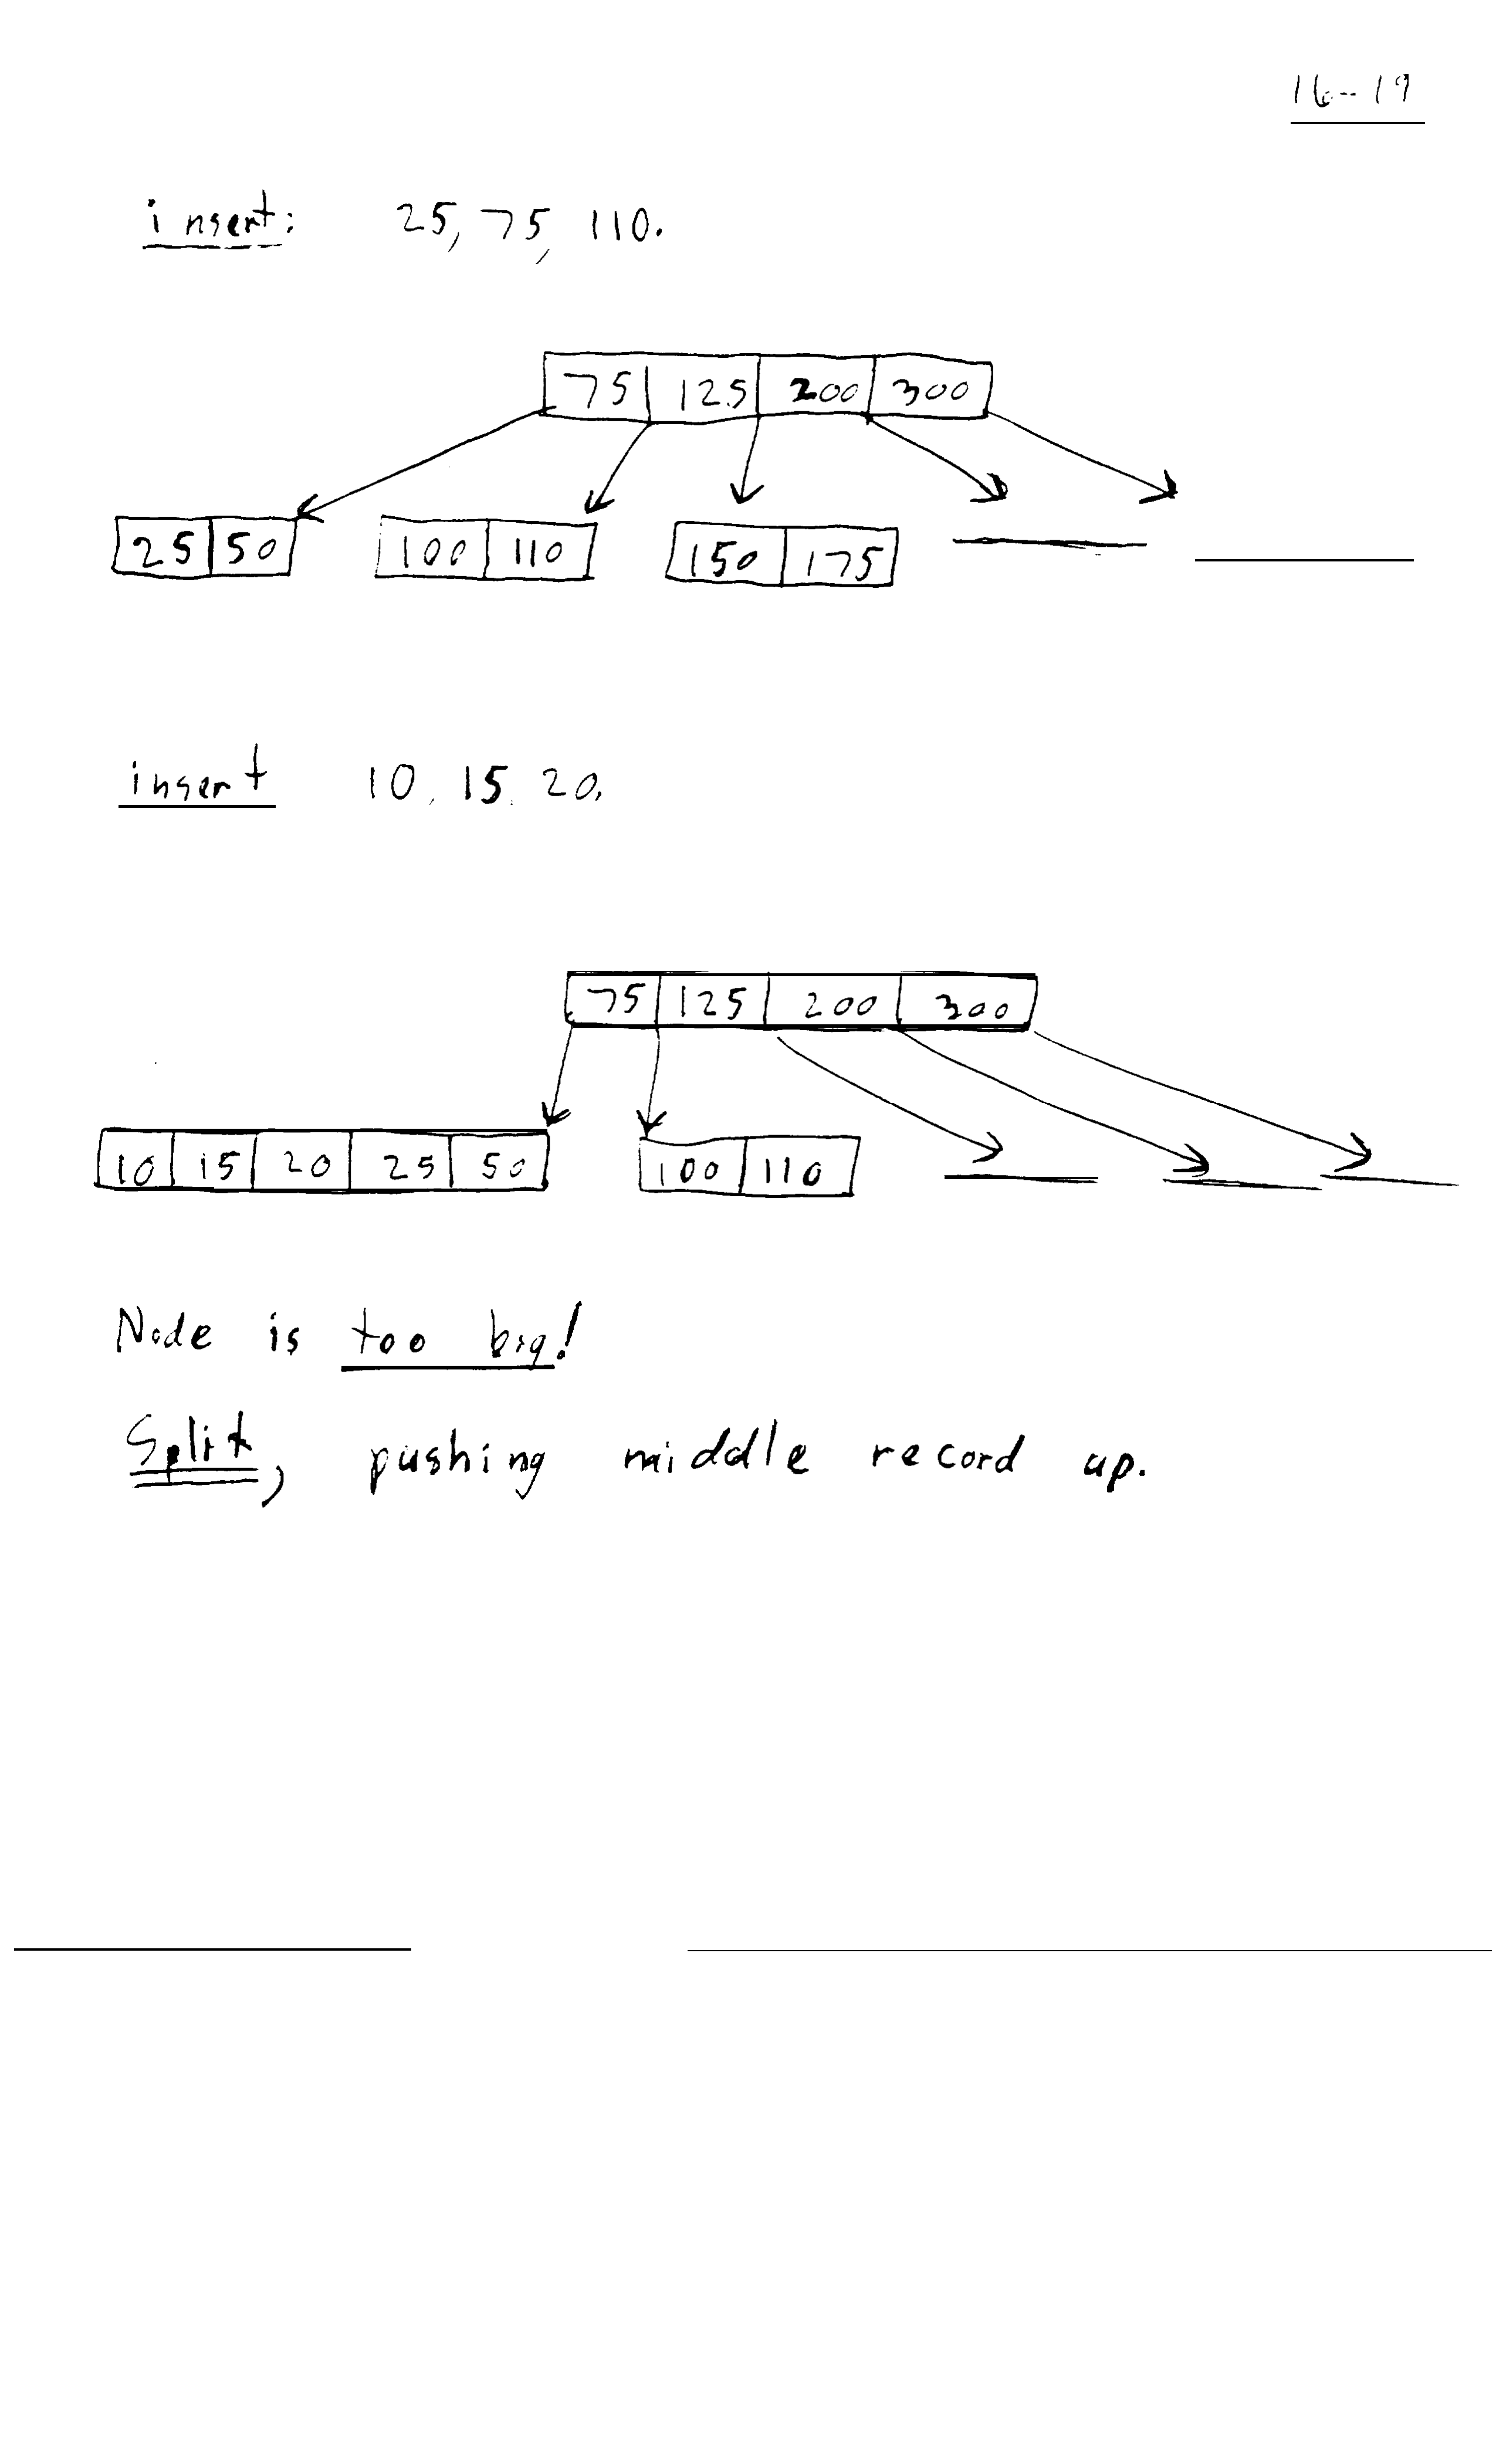 16-19
insert: 25, 75, 110.
75 125 200 300
25 50 100 110 150 175
insert 10, 15, 20.
75 125 200 300
10 15 20 25 50 100 110
Node is too big!
Split, pushing middle record up.